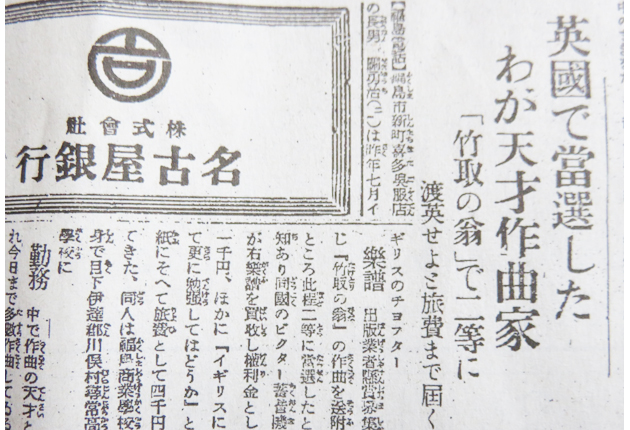 英國で當選した
わが天才作曲家
「竹取の翁」で二等に
渡英せよと旅費まで屆く
【福島電話】福島市新町喜多呉服店
の長男、關勇治(二一)は昨年七月イ
ギリスのチヨフター
樂譜 出版業者懸賞募集
に『竹取の翁』の作曲を送附
ところ此程二等に當選したと
知あり同國のビクター蓄音機
が右樂譜を買収し權利金とし
一千円、ほかに『イギリスに
て更に勉強してはどうか』と
紙にそへて旅費として四千円
てきた、同人は福島商業學校
身で目下伊達郡川俣村尋常高
學校に
勤務 中で作曲の天才と
れ今日まで多數作曲してゐる
株式會社
名古屋銀行